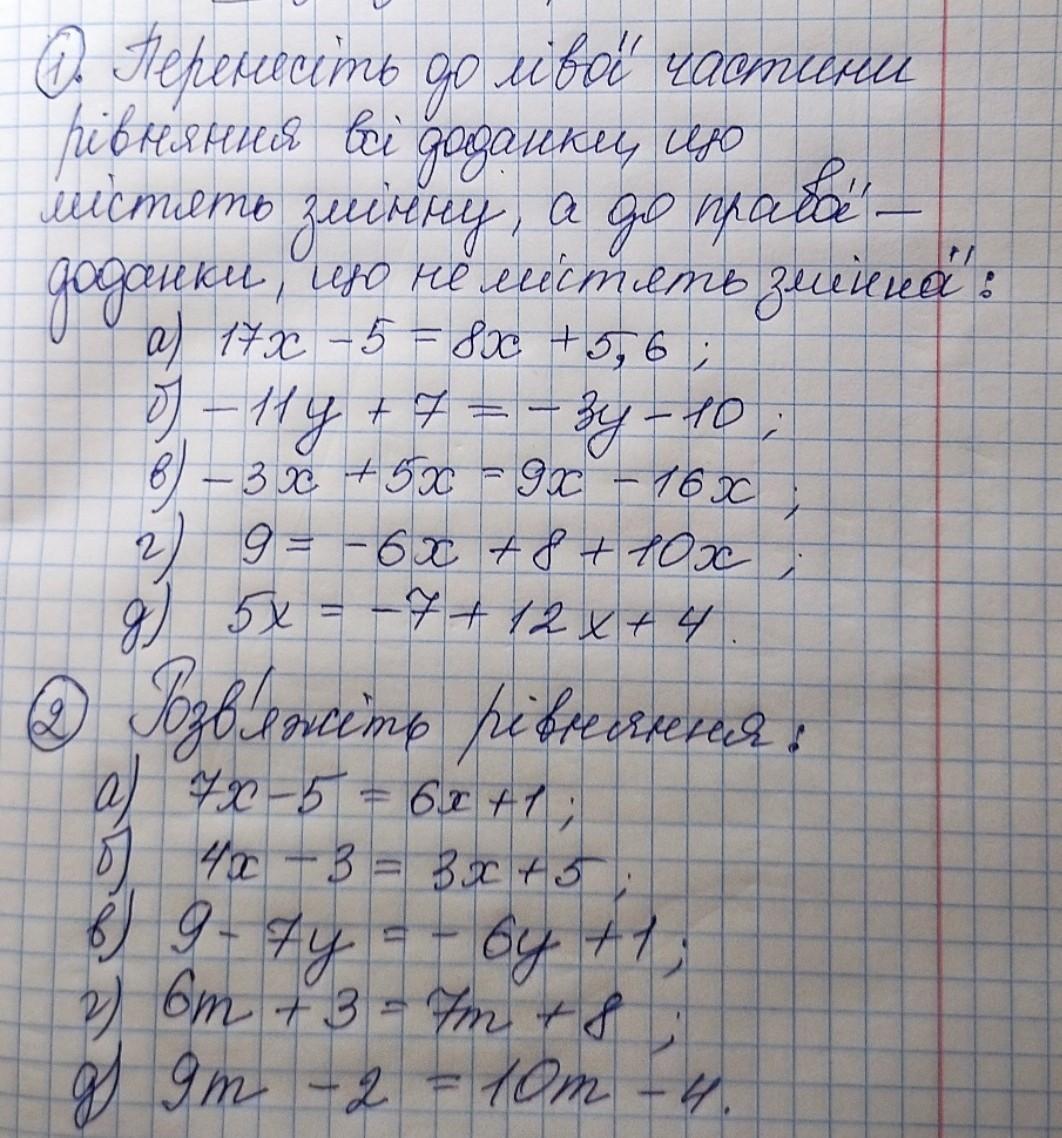 1. Перенесіть до лівої частини
рівняння всі доданки, що
містять змінну, а до правої —
доданки, що не містять змінної:
а) 17x - 5 = 8x + 5,6 ;
б) - 11y + 7 = - 3y - 10 ;
в) - 3x + 5x = 9x - 16x ;
г) 9 = - 6x + 8 + 10x ;
д) 5x = - 7 + 12x + 4 .
2 Розв'яжіть рівняння :
а) 7x - 5 = 6x + 1 ;
б) 4x - 3 = 3x + 5 ;
в) 9 - 7y = - 6y + 1 ;
г) 6m + 3 = 7m + 8 ;
д) 9m - 2 = 10m - 4.